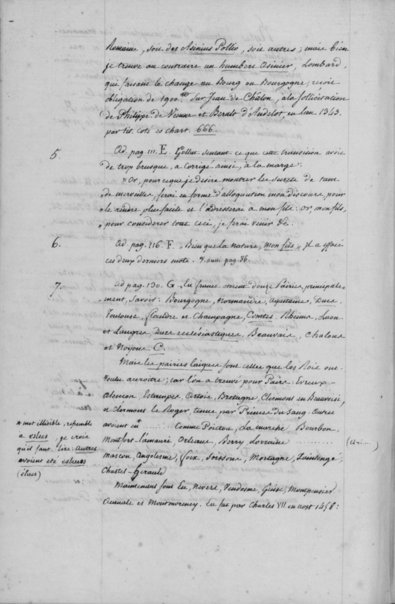 Romaine, soit des Asinius Pollio, soit autres; mais bien
je trouve au contraire un humbert asinier, Lombard
qui faisant le change au Bourg en Bourgogne; reçoit
obligation de 1900 sur Jean de Chalon, à la sollicitation
de Philippe de Vienne et d'Andelot, en l'an 1343.
par tit. coté es chart. 666.
5 Ad. pag. 111. E. Gollut sentant ce que cette transission avoit
de trop brusque, a corrigé ainsi, à la marge:
"Or, pour ce que je desire montrer les
de merveilles, ferai en forme d'alloquution mon discours, pour
le rendre plus facile et l'adresserai à mon fils: or, mon fils,
pour considerer tout ceci, je ferai venir &c.
6. Ad. pag. 116. F. Bien que la nature, mon fils = Il a effacé
ces deux derniers mots. V. aussi pag. 86.
7. Ad pag. 130. G. la france aiant douze Pairies, principale
ment, savoir: Bourgogne, Normandie, Aquitaine, Ducs.
Toulouse, flandre et Champagne, Contes. Rheims, Laon
et Langres ducs ecclésiastiques, Beauvais, Chalons
et Noyons. C.
Mais les pairies laiques sont celles que les Rois ont
voulu accroitre; car l'on a trouvé pour Pairs. Evreux
Alencon, Estampes, Artois, Bretagne, Clermont en Beauvoisi,
et Clermont le tenus par Princes du sang. Autres
avoient eu ...... Comme Poitou, La marche, Bourbon,
Montfort l'amauri, Orleans, Berry, Lorraine ......
Mascon, Angolesme, Foix, Soissons, Mortagne, Saintonge,
Chastel-Girauld
Maintenant sont Eu, Nevers, Vendosme, Guise, Monpensier
Aumale et Montmorency. Eu fut par Charles VII en aost 1458:
* mot illisible, resemble
à esleus je crois
qu'il faut lire autres
avoient été esleues
(élues)